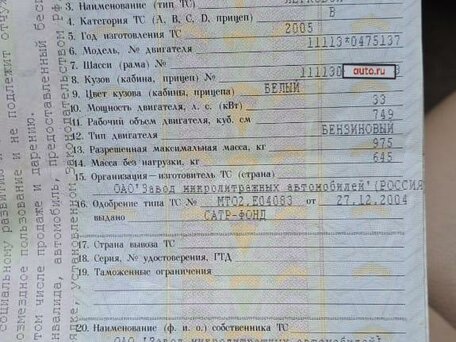 3. Наименование (тип ТС)
4. Категория ТС (A, B, C, D, прицеп) B
5. Год изготовления ТС 2005
6. Модель, № двигателя 11113*0475137
7. Шасси (рама) №
8. Кузов (кабина, прицеп) № 111130 auto.ru 8
9. Цвет кузова (кабины, прицепа) БЕЛЫЙ
10. Мощность двигателя, л. с. (кВт) 33
11. Рабочий объем двигателя, куб. см 749
12. Тип двигателя БЕНЗИНОВЫЙ
13. Разрешенная максимальная масса, кг 975
14. Масса без нагрузки, кг 645
15. Организация—изготовитель ТС (страна)
ОАО'Завод микролитражных автомобилей'(РОССИЯ
16. Одобрение типа ТС № МТ02.Е04083 от 27.12.2004
выдано САТР-ФОНД
17. Страна вывоза ТС
18. Серия, № удостоверения, ГТД
19. Таможенные ограничения
20. Наименование (ф. и. о.) собственника ТС
ОАО 'Завод микролитражных автомобилей'
социальному развитию
возмездное пользование и не подлежит отчуж
том числе продаже и дарению.
инвалида, автомобиль, предоставленный бесп
установленном Законодательством РФ